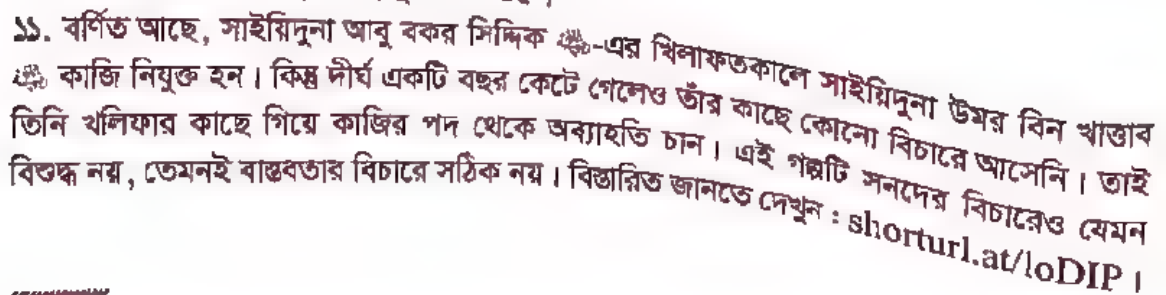 ১১. বর্ণিত আছে, সাইয়িদুনা আবু বকর সিদ্দিক ﷺ-এর খিলাফতকালে সাইয়িদুনা উমর বিন খাত্তাব
কাজি নিযুক্ত হন। কিন্তু দীর্ঘ একটি বছর কেটে গেলেও তাঁর কাছে কোনো বিচারে আসেনি। তাই
তিনি খলিফার কাছে গিয়ে কাজির পদ থেকে অব্যাহতি চান। এই গল্পটি সনদের বিচারেও যেমন
বিশুদ্ধ নয়, তেমনই বাস্তবতার বিচারে সঠিক নয়। বিস্তারিত জানতে দেখুন : shorturl.at/loDIP।